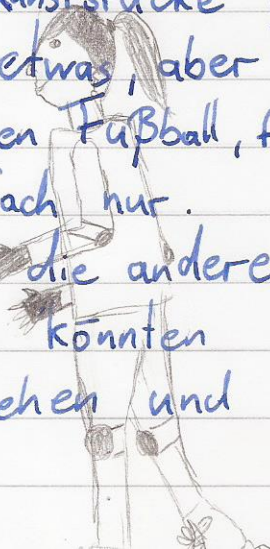 etwas, aber
en Fußball, f
ach nur.
die andere
könnten
ehen und